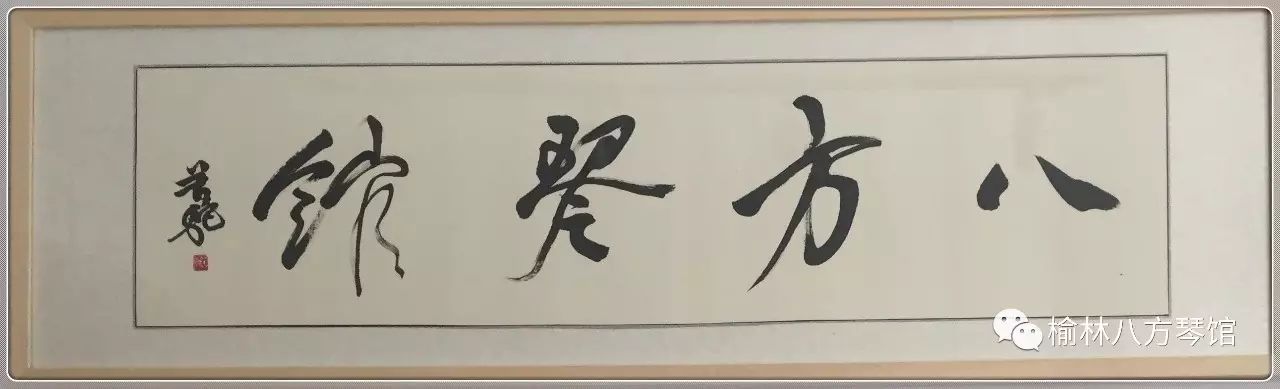 八方琴館
榆林八方琴馆